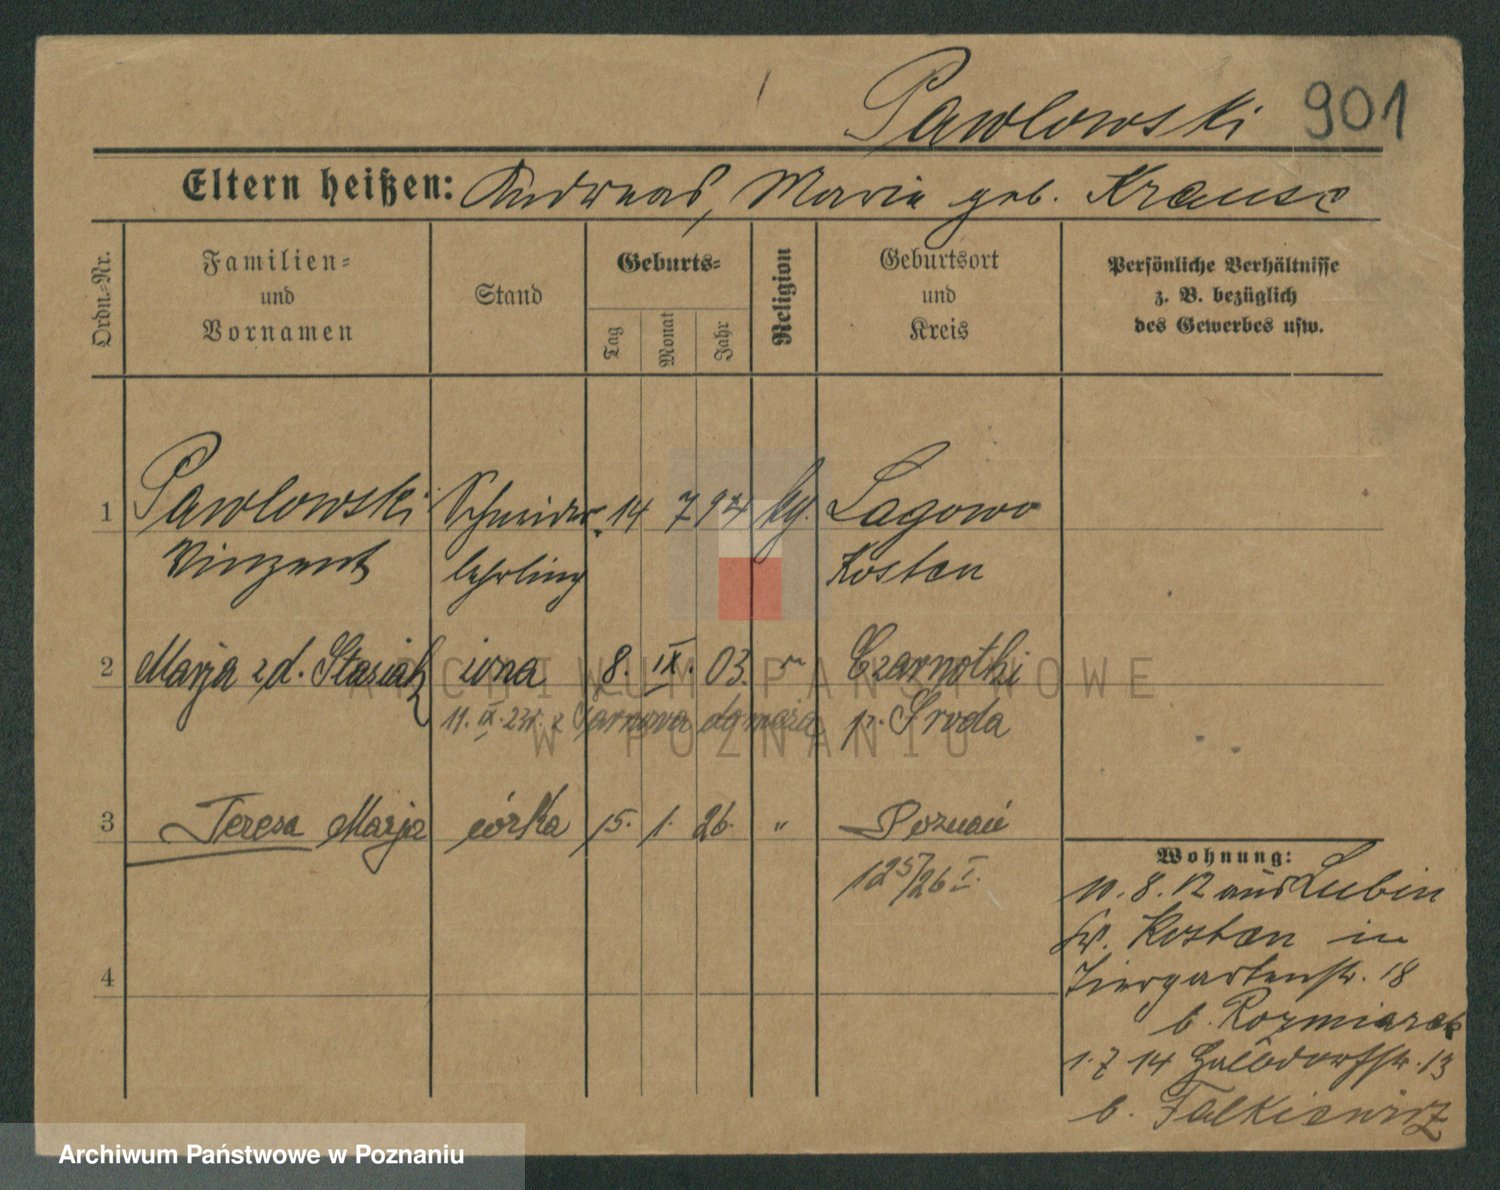 Pawlowski 901
Eltern heißen: Andreas, Marie geb. Krause
Ordn.-Nr.
Familien-
und
Vornamen
Stand
Geburts-
Tag
Monat
Jahr
Religion
Geburtsort
und
Kreis
Persönliche Verhältnisse
z. B. bezüglich
des Gewerbes usw.
1 Pawlowski Schneider- 14 7 94 kg. Lagowo
Vinzent lehrling Kosten
2 Marja zd. Stasiak żona 8. IX. 03. " Czarnotki
11. IX. 23r. z domena p. Środa
3 Teresa Marja córka 15. 1. 26. " Poznań
125/26 I.
4
Wohnung:
10. 8. 12 aus Lubin
Kr. Kosten in
Tiergartenstr. 18
b. Rozmiarek
1. 7 14 Halbdorfstr. 13
b. Falkiewicz
ARCHIWUM PAŃSTWOWE
W POZNANIU
Archiwum Państwowe w Poznaniu